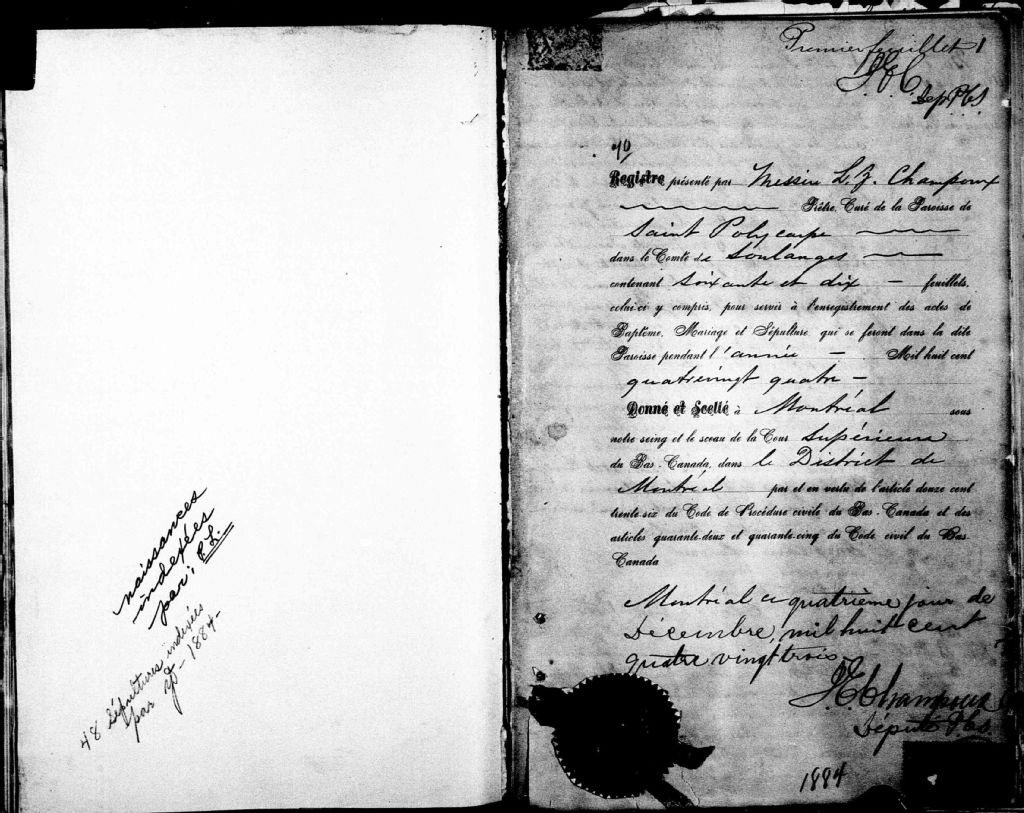 naissances
indexées
par: C.L.
48 sépultures indexées
par
1884-
Premier feuillet 1
Dep P.C.S
70
Registre présenté par Messire L. Z. Champoux
Prêtre, Curé de la Paroisse de
Saint Polycarpe
dans le Comté de Soulanges
contenant soixante et dix feuillets,
celui-ci y compris, pour servir à l'enregistrement des actes de
Baptême, Mariage et Sépulture, qui se feront dans la dite
Paroisse pendant l'année Mil huit cent
quatrevingt quatre
Donné et Scellé à Montréal sous
notre seing et le sceau de la Cour Supérieure
du Bas-Canada, dans le District de
Montréal par et en vertu de l'article douze cent
trente-six du Code de Procédure civile du Bas-Canada et des
articles quarante-deux et quarante-cinq du Code civil du Bas
Canada
Montréal ce quatrième jour de
Décembre, mil huit cent
quatre vingt trois.
Champoux
Député P.C.S.
1884